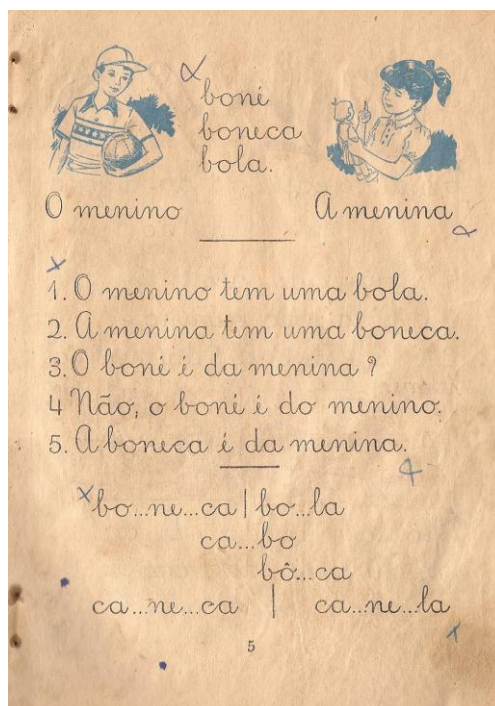 boné
boneca
bola.
O menino A menina
1. O menino tem uma bola.
2. A menina tem uma boneca.
3. O boné é da menina ?
4 Não, o boné é do menino.
5. A boneca é da menina.
bo...ne...ca | bo...la
ca...bo
bô...ca
ca...ne...ca | ca...ne...la
5